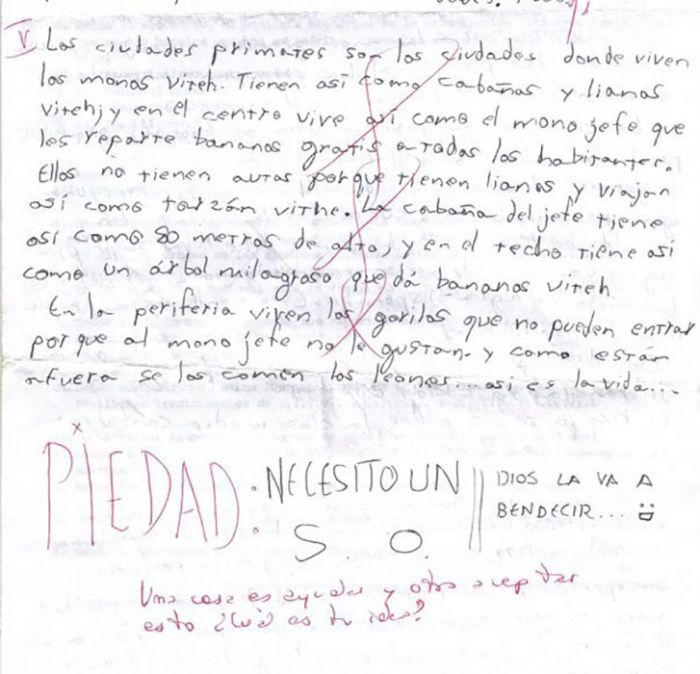 V Las ciudades primates son las ciudades donde viven
los monos viteh. Tienen así como cabañas y lianas
vitehj y en el centro vive así como el mono jefe que
les reparte bananas gratis a todos los habitantes.
Ellos no tienen autos porque tienen lianas y viajan
así como tarzán vithe. La cabaña del jefe tiene
así como 80 metros de alto, y en el techo tiene así
como un árbol milagroso que dá bananas viteh
En la periferia viven los gorilas que no pueden entrar
porque al mono jefe no le gustan. y como están
afuera se los comen los leones... asi es la vida...
x
PIEDAD: NECESITO UN
S. O.
DIOS LA VA A
BENDECIR...
Una cosa es ayudar y otra aceptar
esto ¿Cuál es tu idea?